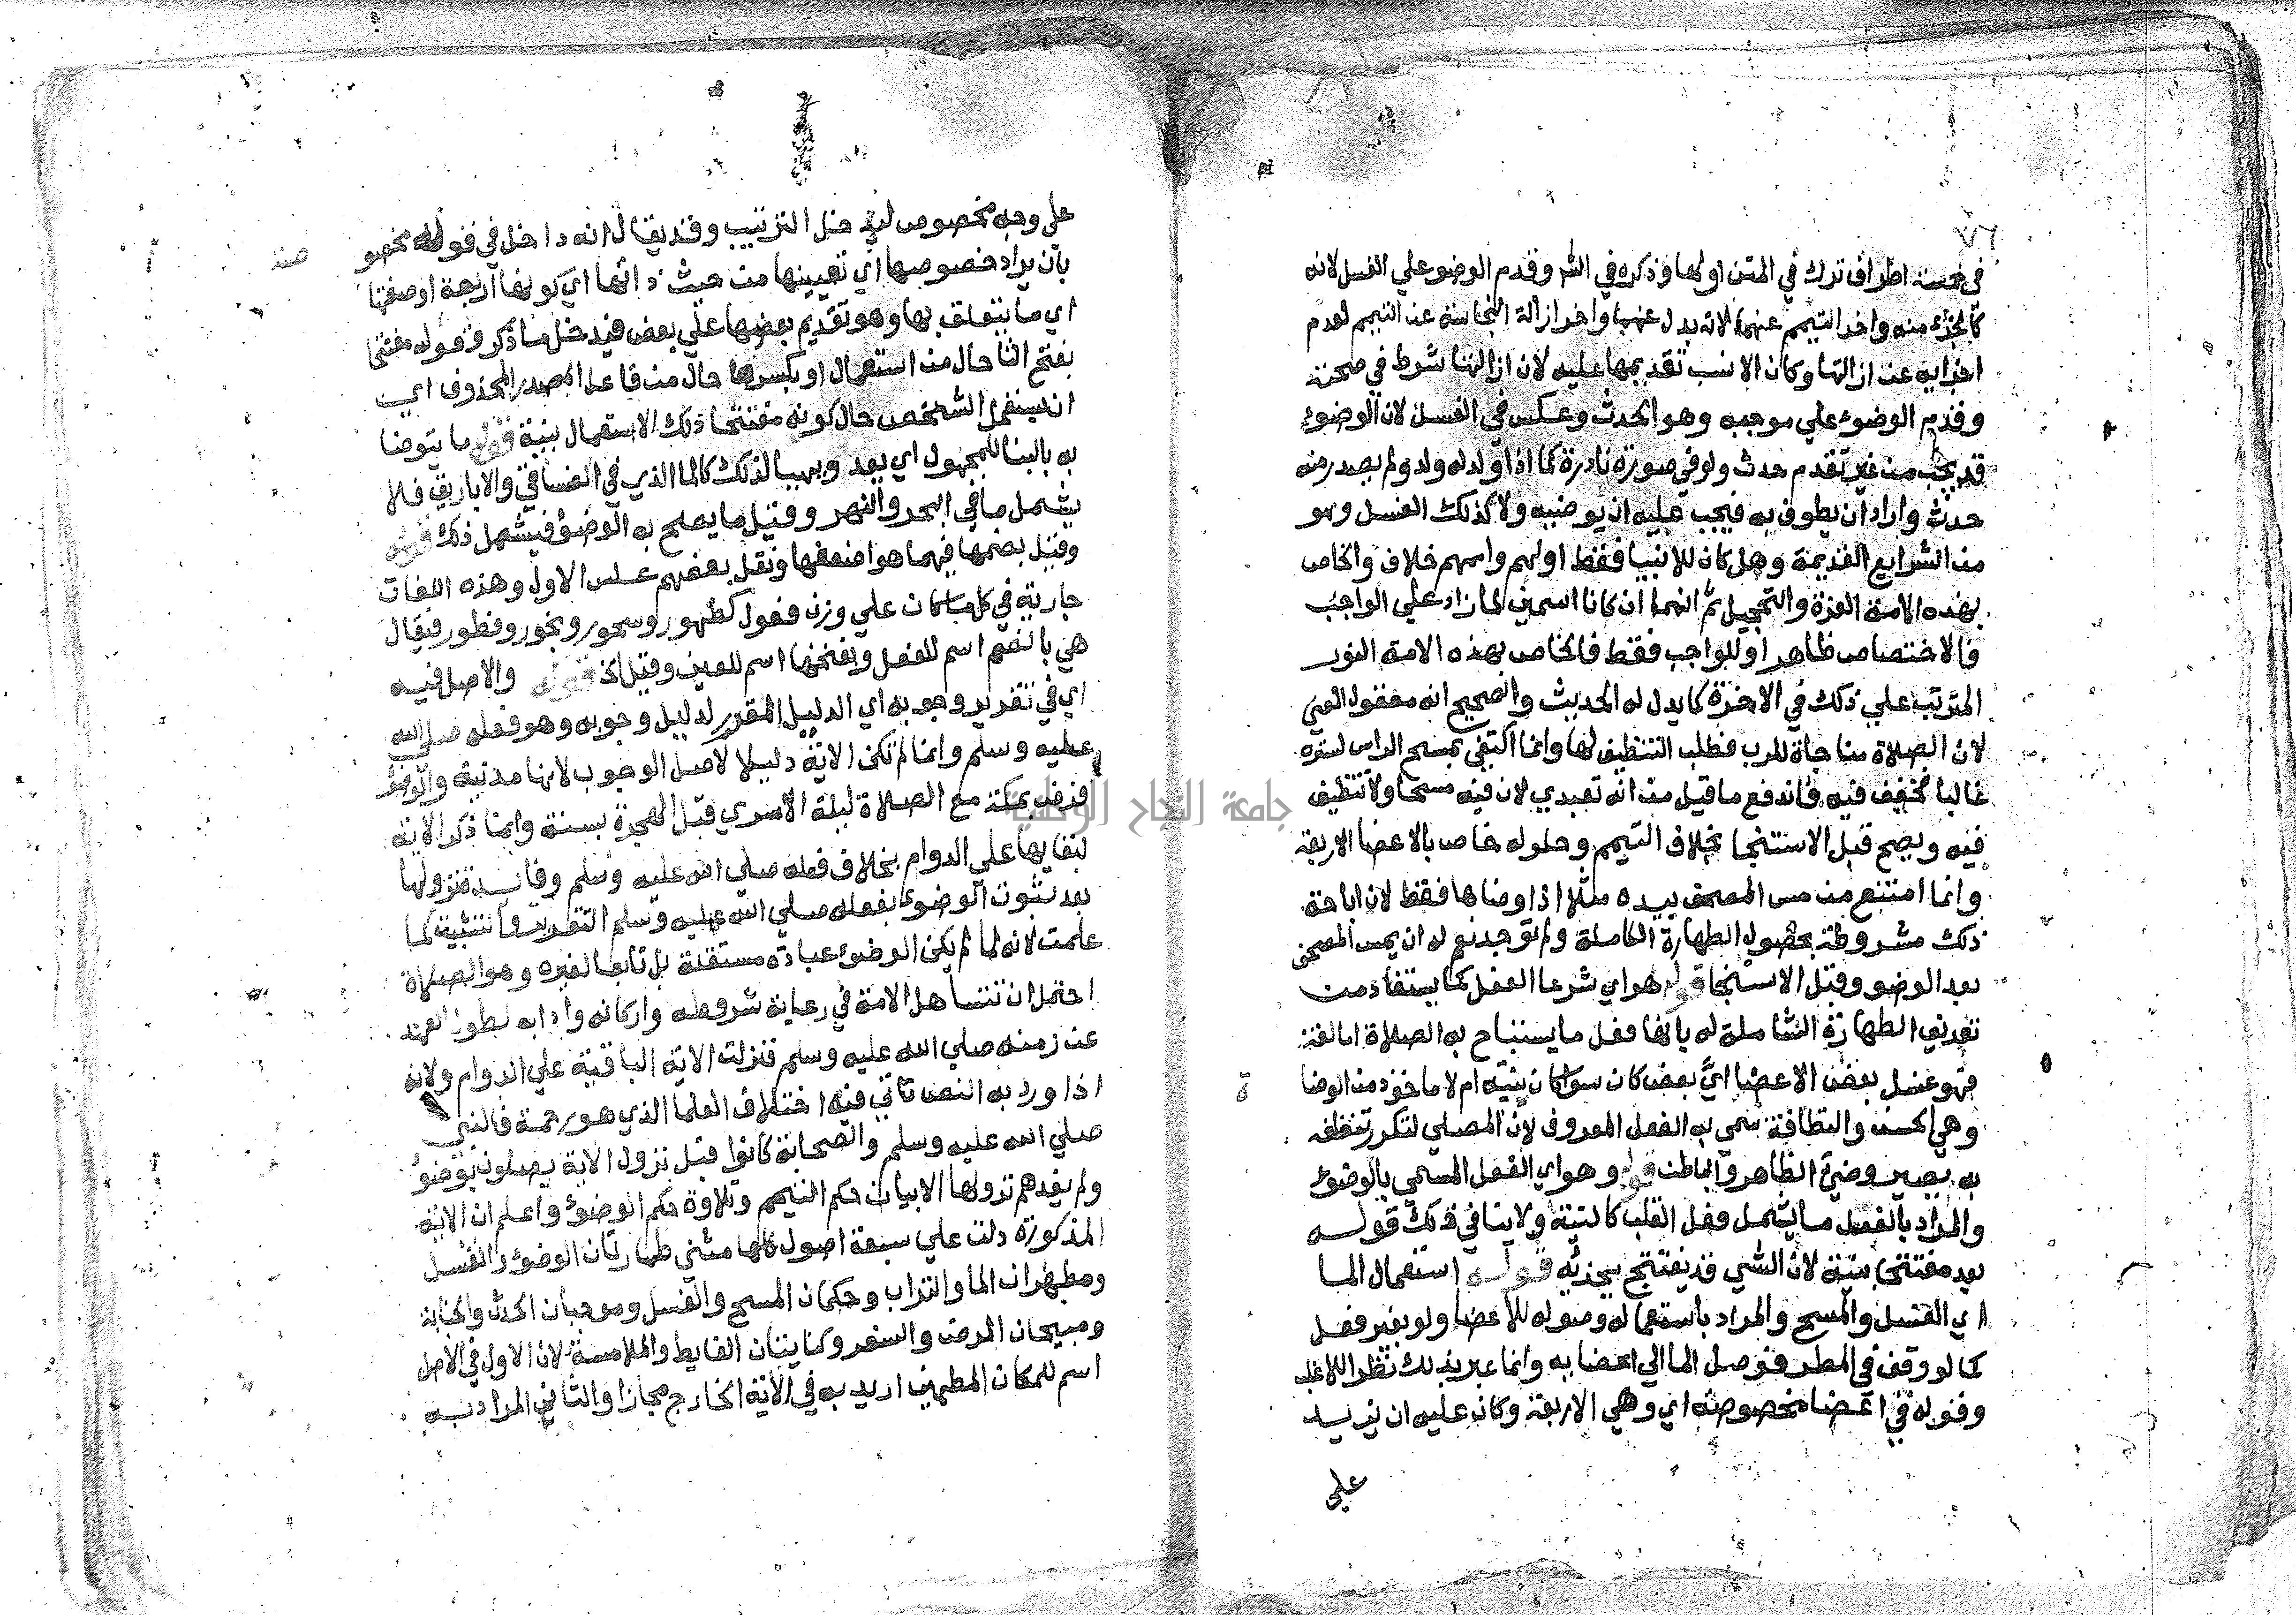 ٧٦
في خمسة اطراف ترك في المتن اولها وذكره في الشر وقدم الوضو علي الغسل لانه
كالجزء منه واخر التيمم عنهما لانه بدل عنهما واخر ازالة النجاسة عن التيمم لعدم
اجزايه عن ازالتها وكان الانسب تقديمها عليه لان ازالتها شرط في صحته
وقدم الوضوء علي موجبه وهو الحدث وعكس في الغسل لان الوضوء
قد يجب من غير تقدم حدث ولو في صورة نادرة كما اذا ولد له ولد ولم يصدر منه
حدث واراد ان يطوف به فيجب عليه ان يوضئه ولا كذلك الغسل وهو
من الشرايع القديمة وهل كان للانبيا فقط او لهم ولاممهم خلاف والخاص
بهذه الامة الغرة والتحجيل ثم انهما ان كانا اسمين لما زاد علي الواجب
فالاختصاص ظاهر او للواجب فقط فالخاص بهذه الامة النور
المترتب علي ذلك في الاخرة كما يدل له الحديث والصحيح انه معقول المعني
لان الصلاة مناجاة للرب فطلب التنظيف لها وانما اكتفي بمسح الراس لستره
غالبا فخفف فيه فاندفع ما قيل من انه تعبدي لان فيه مسحا ولا تنظيف
فيه ويصح قبل الاستنجا بخلاف التيمم وحلوله خاص بالاعضا الاربعة
وانما امتنع من مس المصحف بيده مثلا اذا وضاها فقط لان اباحة
ذلك مشروطة بحصول الطهارة الكاملة ولم توجد نعم له ان يمس المصحف
بعد الوضو وقبل الاستنجا قوله هو اي شرعا الفعل كما يستفاد من
تعريف الطهارة الشاملة له بانها فعل ما يستباح به الصلاة اما لغة
فهو غسل بعض الاعضا اي بعض كان سوا كان بنية ام لا ماخوذ من الوضا
ة
وهي الحسن والنظافة سمي به الفعل المعروف لان المصلي لتكرر تنظفه
به يصير وضئ الظاهر والباطن قوله وهو اي الفعل المسمي بالوضوء
والمراد بالفعل ما يشمل فعل القلب كالنية ولا ينافي ذلك قوله
بعد مفتتحا بنية لان الشي قد يفتتح بجزئه قوله استعمال الما
اي الغسل والمسح والمراد باستعماله وصوله للاعضا ولو بغير فعل
كما لو وقف في المطر فوصل الما الي اعضايه وانما عبر بذلك نظرا للاغلب
وقوله في اعضا مخصوصة اي وهي الاربعة وكان عليه ان يزيد
علي
علي وجه مخصوص ليدخل الترتيب وقد يقال انه داخل في قوله مخصو
صة
بان يراد خصوصها اي تعيينها من حيث ذاتها اي كونها اربعة او صفتها
اي ما يتعلق بها وهو تقديم بعضها علي بعض فيدخل ما ذكر وقوله مفتتحا
بفتح التا حال من استعمال او بكسرها حال من فاعل المصدر المحذوف اي
ان يستعمل الشخص حال كونه مفتتحا ذلك الاستعمال بنية قوله ما يتوضا
به بالبنا للمجهول اي يعد ويهيا لذلك كالما الذي في الفساقي والاباريق فلا
يشمل ما في البحر والنهر وقيل ما يصلح به الوضوء فيشمل ذلك قوله
وقيل بضمها فيهما هو اضعفها ونقل بعضهم عكس الاول وهذه اللغات
جارية في كل ما كان علي وزن فعول كطهور وسحور وبخور وفطور فيقال
هي بالضم اسم للفعل وبفتحها اسم للعين وقيل الخ قوله والاصل فيه
اي في تقرير وجوبه اي الدليل المقرر لدليل وجوبه وهو فعله صلي الله
عليه وسلم وانما لم تكن الاية دليلا لاصل الوجوب لانها مدنية والوضوء
فرض بمكة مع الصلاة ليلة الاسري قبل الهجرة بسنة وانما ذكر الاية
لبقايها علي الدوام بخلاف فعله صلي الله عليه وسلم وفايدة نزولها
بعد ثبوت الوضوء بفعله صلي الله عليه وسلم التقرير والتثبيت كما
علمت لانه لما لم يكن الوضوء عبادة مستقلة بل تابعا لغيره وهو الصلاة
احتمل ان تتساهل الامة في رعاية شروطه واركانه وادابه لطول العهد
عن زمنه صلي الله عليه وسلم فنزلت الاية الباقية علي الدوام ولانه
اذا ورد به النص تاتي فيه اختلاف العلما الذي هو رحمة فالنبي
صلي الله عليه وسلم والصحابة كانوا قبل نزول الاية يصلون بوضوء
ولم يفدهم نزولها الا بيان حكم التيمم وتلاوة حكم الوضوء واعلم ان الاية
المذكورة دلت علي سبعة اصول كلها مثني طهارتان الوضوء والغسل
ومطهران الما والتراب وحكمان المسح والغسل وموجبان الحدث والجنابة
ومبيحان المرض والسفر وكنايتان الغايط والملامسة لان الاول في الاصل
اسم للمكان المطمئن اريد به في الاية الخارج مجازا والثاني المراد به
جامعة النجاح الوطنية